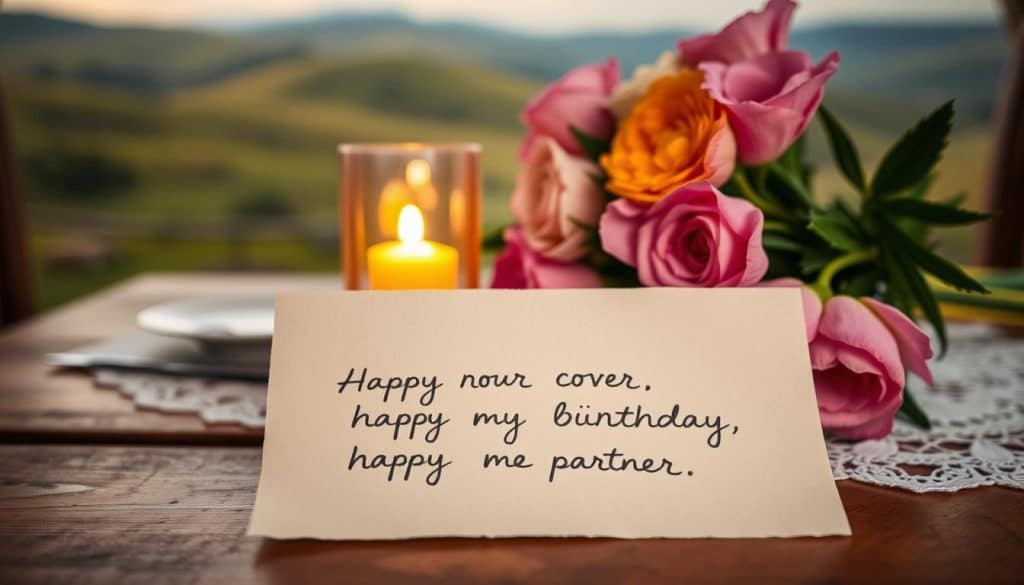 Happy nour cover.
happy my bünthday,
happy me partner.